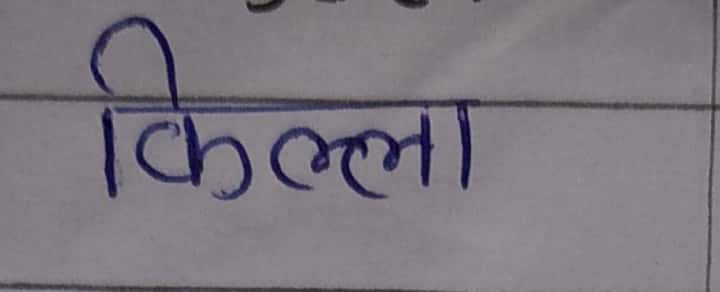 किल्ला